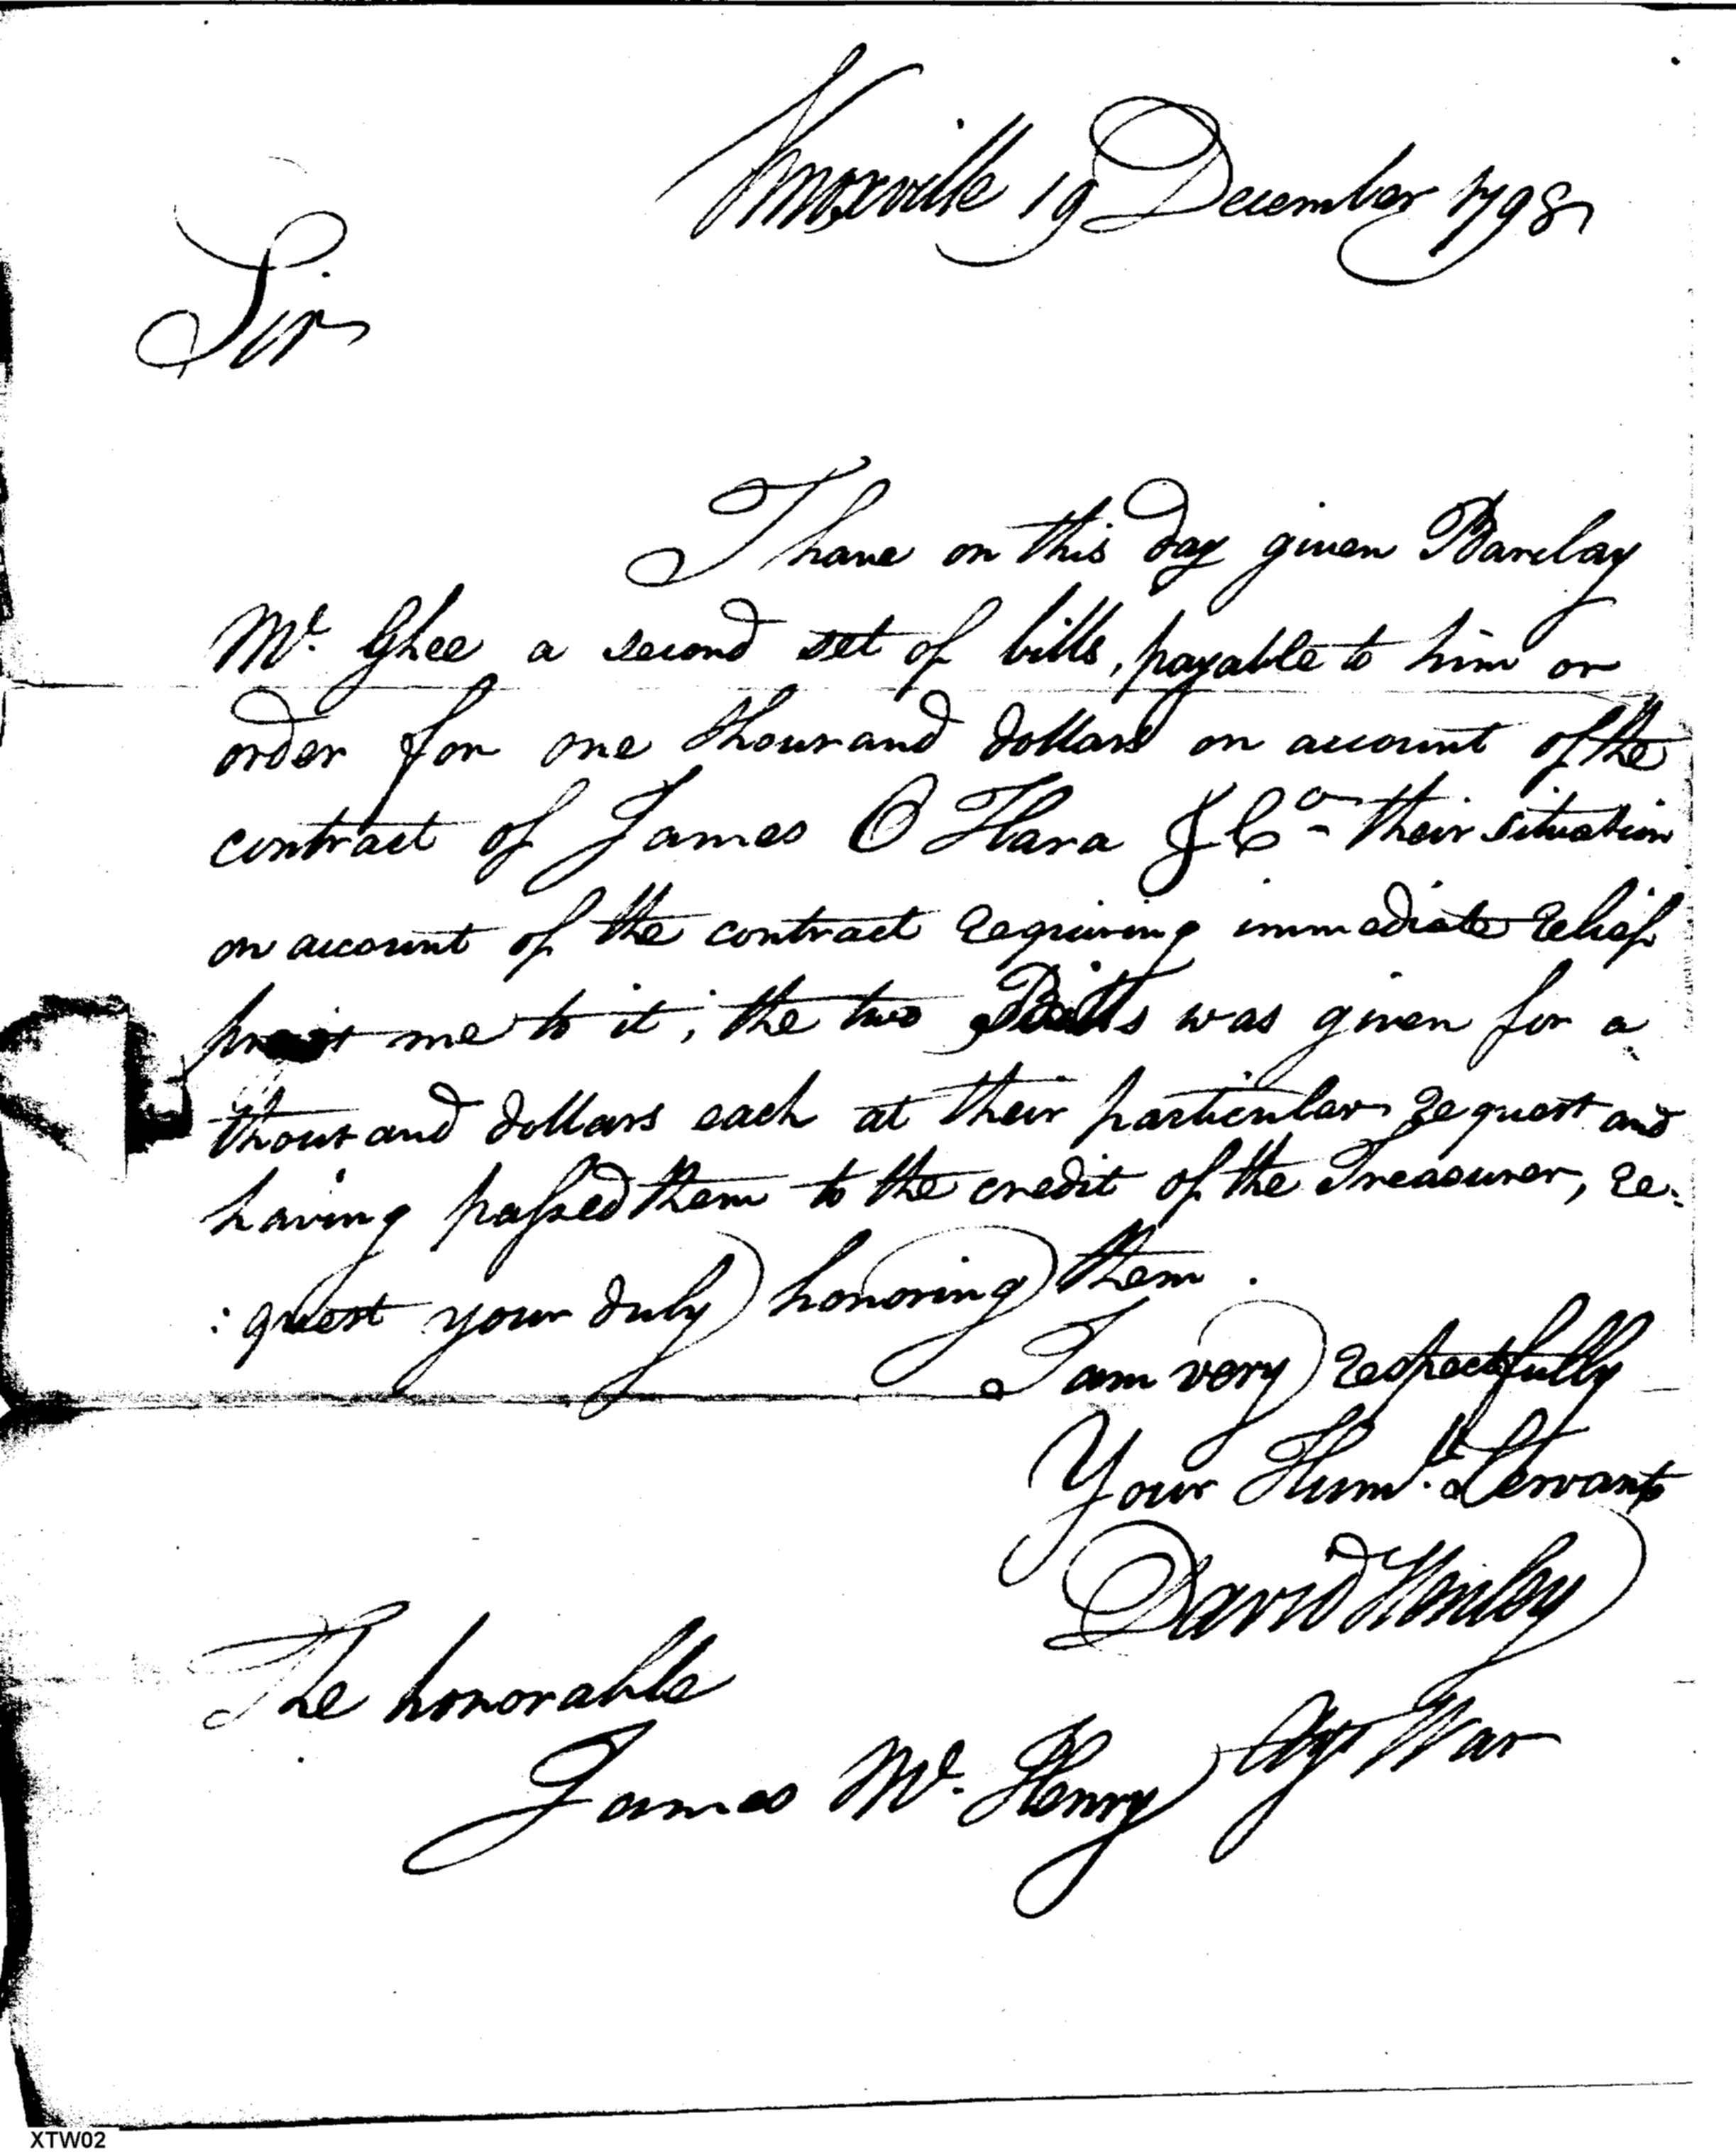 Knoxville 19 December 1798
Sir
I have on this day given Barclay
Mc. Ghee a second set of bills, payable to him or
order for one thousand dollars on account of the
contract of James O Hara & Co - their situation
on account of the contract requiring immediate relief
me to it; the two Bills was given for a
thousand dollars each at their particular request and
having passed them to the credit of the Treasurer, re:
:quest your duly honoring them.
I am very respectfully
Your Humle. Servant
David Henley
Agt War
The honorable
James Mc. Henry
XTW02